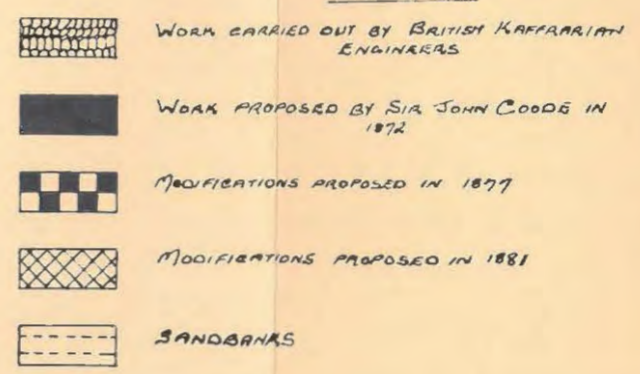 WORK CARRIED OUT BY BRITISH KAFFRARIAN
ENGINEERS
WORK PROPOSED BY SIR JOHN COODE IN
1872
MODIFICATIONS PROPOSED IN 1877
MODIFICATIONS PROPOSED IN 1881
SANDBANKS